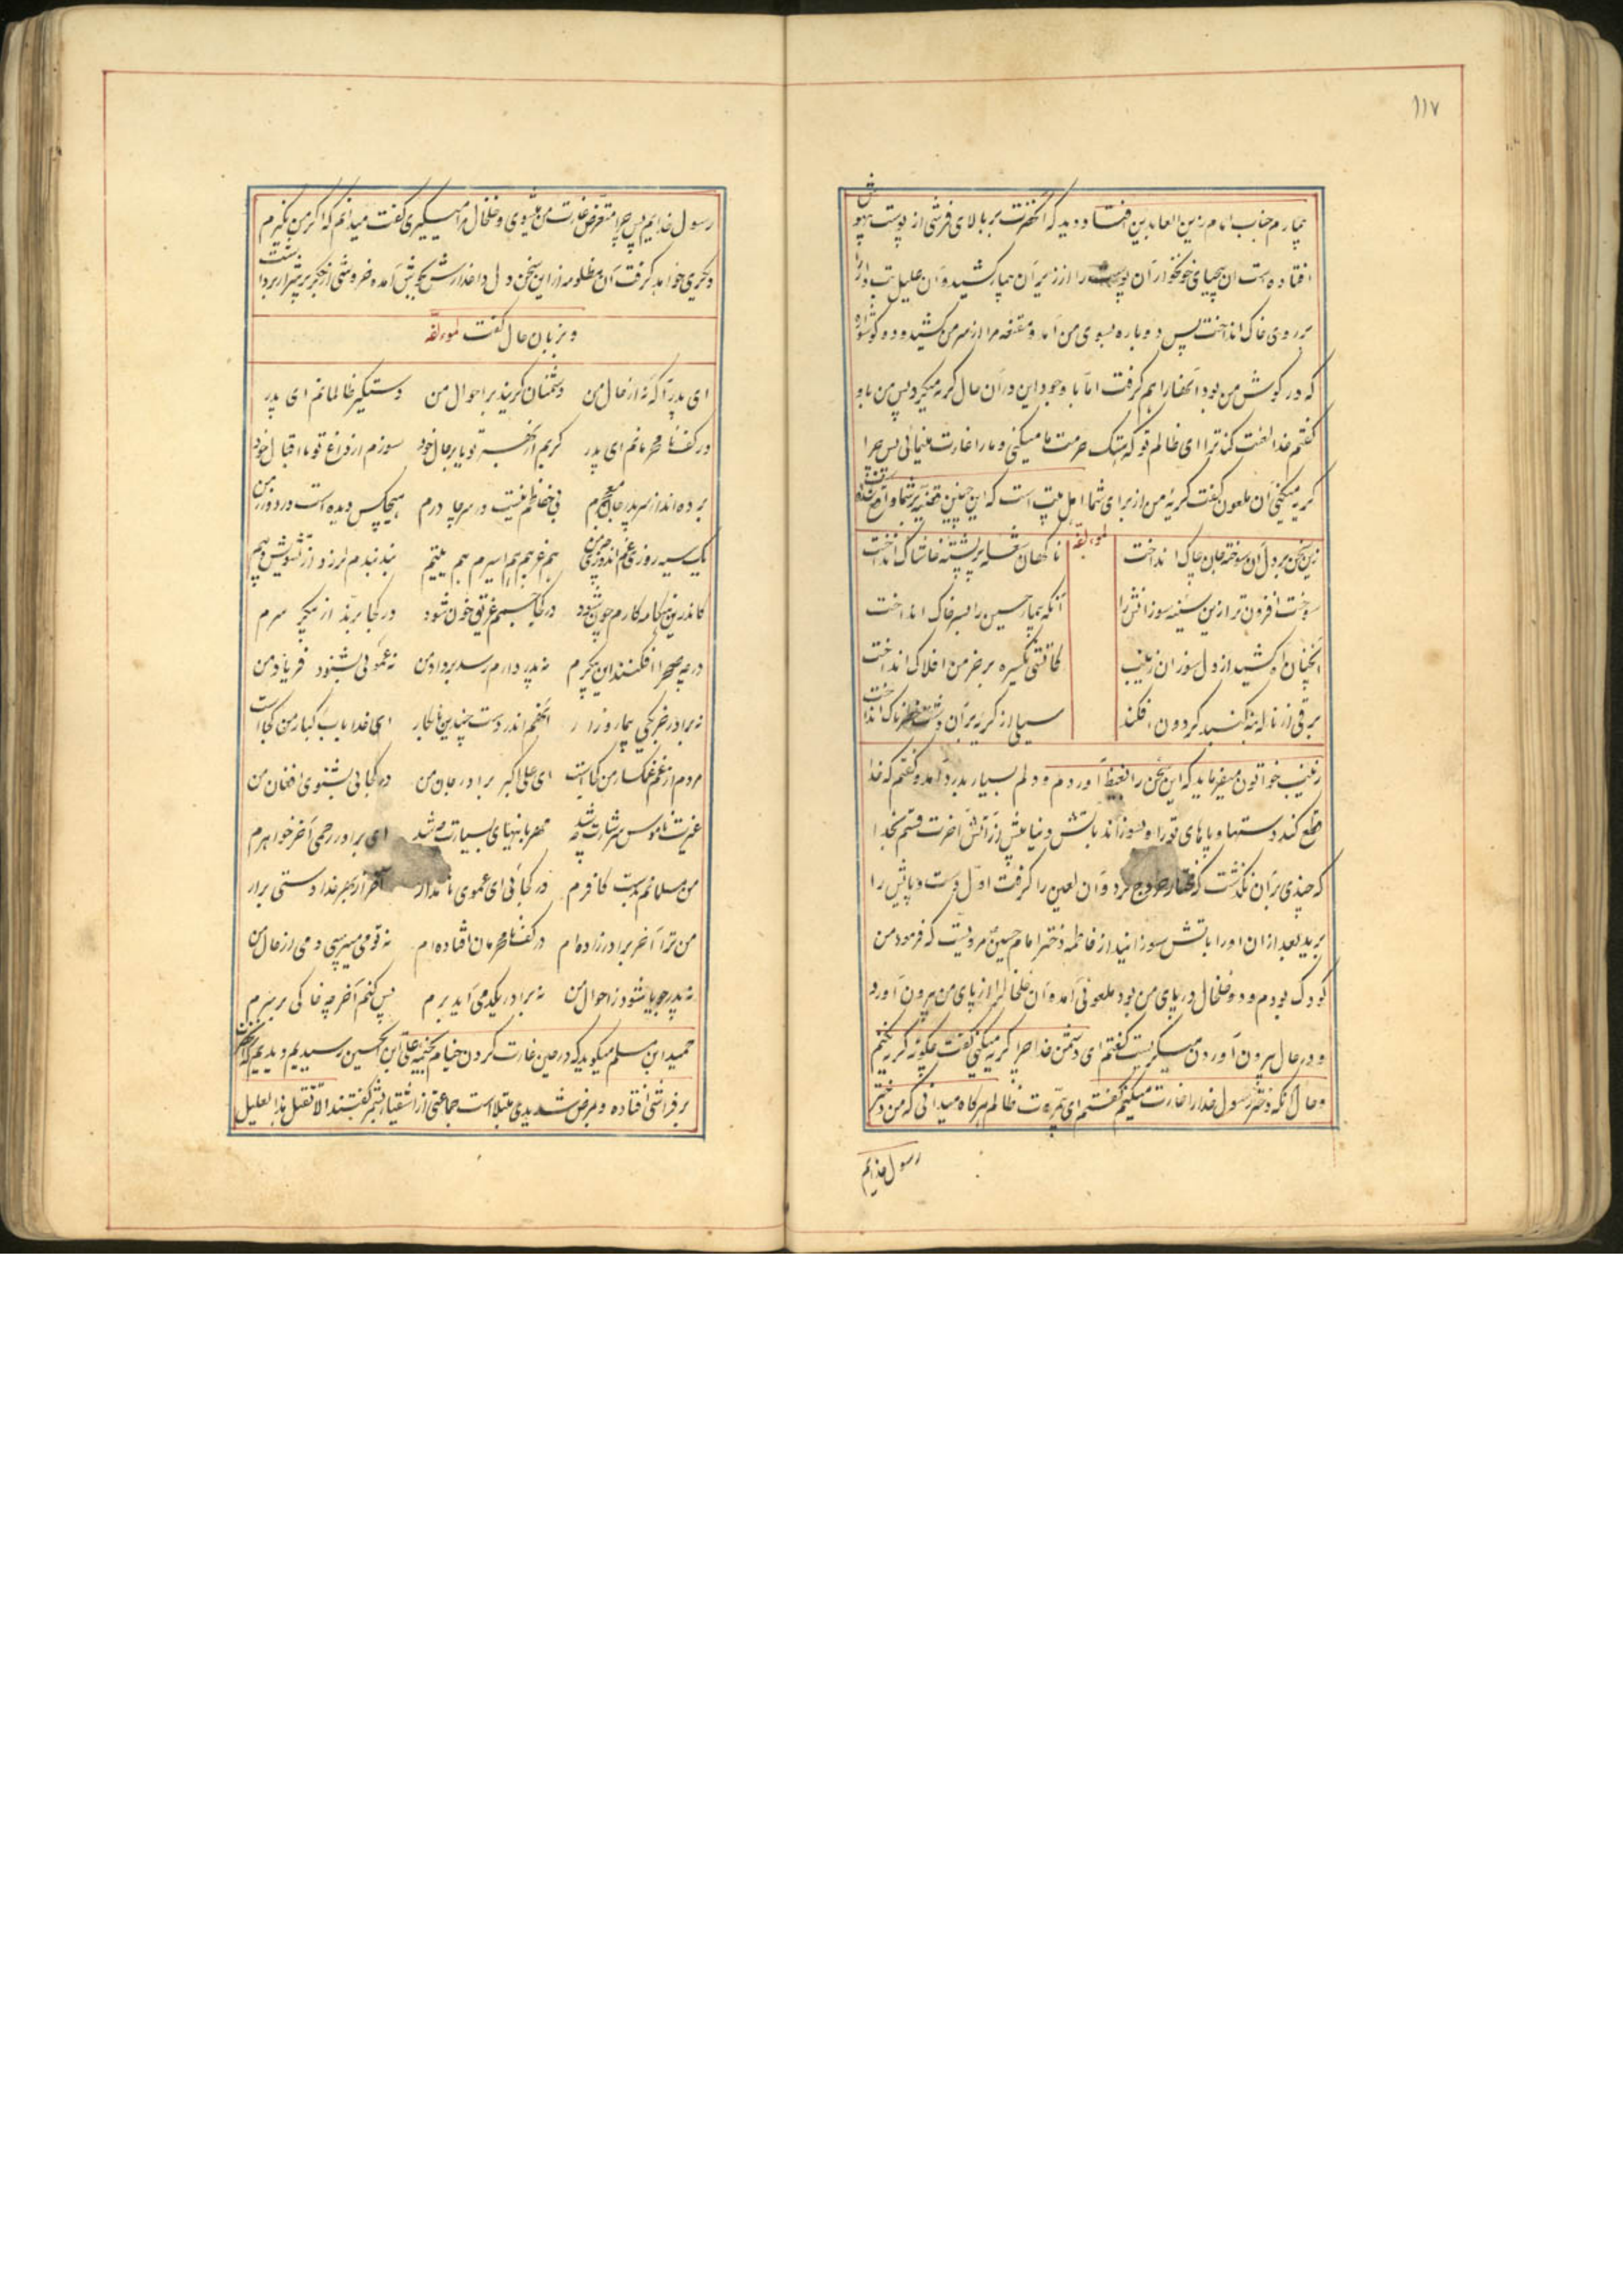 ۱۱۷
بیمارم جناب امام زین العابدین افتاد و دید که آنحضرت بر بالای فرشی از پوست بیهوش
افتاده است آن بیحیای خونخوار آن پوست را از زیر آن بیمار کشید و آن علیل تب دار را
بر روی خاک انداخت پس دوباره بسوی من آمد و مقنعه مرا از سر من کشید و دو گوشواره
که در گوش من بود آنها را هم گرفت اما با وجود این در آن حال گریه میکرد پس من باو
گفتم خدا لعنت کند ترا ای ظالم تو که هتک حرمت ما میکنی و ما را غارت مینمائی پس چرا
گریه میکنی آن ملعون گفت گریه من از برای شما اهل بیت است که این چنین بر شما واقع شده
لمؤلفه
زین سخن بر دل آن سوخته جان چاک انداخت ناگهان شعله بر پشته خاشاک انداخت
سوخت افزون تر ازین سینه سوزانش را آنکه بیمار حسین را بسر خاک انداخت
آنچنان آه کشید از دل سوزان زینب کاتشی یکسره بر خرمن افلاک انداخت
برقی از ناله به نه گنبد گردون افکند سیلی از گریه بر آن دشت خطرناک انداخت
زینب خواتون میفرماید که این سخن را بغیظ آوردم و دلم بسیار بدرد آمد و گفتم که خدا
قطع کند دستها و پاهای تو را و بسوزاند بآتش دنیا پیش از آتش آخرت قسم بخدا
که چندی بر آن نگذشت که مختار خروج کرد و آن لعین را گرفت اول دست و پایش را
برید بعد از آن او را بآتش سوزانید از فاطمه دختر امام حسین مرویست که فرمود من
کودک بودم و دو خلخال در پای من بود ملعونی آمد و آن خلخالها را از پای من بیرون آورد
و در حال بیرون آوردن میگریست گفتم ای دشمن خدا چرا گریه میکنی گفت چگونه گریه نکنم
و حال آنکه دختر رسول خدا را غارت میکنم گفتم ای ظالم هر گاه میدانی که من دختر
رسول خدایم
رسول خدایم پس چرا متعرض غارت من میشوی و خلخال مرا میگیری گفت میدانم که اگر من نگیرم
دیگری خواهد گرفت آن مظلومه از این سخن دل داغدارش بجوش آمده خروشی از جگر پر شرار برداشت
و بزبان حال گفت لمؤلفه
ای پدر آگه نه از حال من دشمنان گریند بر احوال من دستگیر ظالمانم ای پدر
در کف نامحرمانم ای پدر گریم از هجر تو یا بر حال خود سوزم از داغ تو یا اقبال خود
برده اند از سر پدر جان معجرم نی خلخلم نیست در سر چادرم هیچکس دیده است در دور زمن
یک سیه روزی غم اندوزی چو من هم غریبم هم اسیرم هم یتیم بند بندم لرزد از تشویش و بیم
کاندرین هنگامه کارم چون شود در کجا جسمم غریق خون شود در کجا برند از پیکر سرم
در چه صحرا افکنند این پیکرم نه پدر دارم رسد بر داد من نه عموئی بشنود فریاد من
نه برادر جز یکی بیمار و زار آنهم اندر دست چندین نابکار ای خدا باب کبار من کجا است
مردم از غم غمگسار من کجاست ای علی اکبر برادر جان من در کجائی بشنوی افغان من
غیرت ناموس سرشارت چه شد مهربانیهای بسیارت چه شد ای برادر رحمی آخر خواهرم
من مسلمانم نیست کافرم در کجائی ای عموی نامدار آخر از بهر خدا دستی برار
من ترا آخر برادرزاده ام در کف نامحرمان افتاده ام نه تو می پرسی دمی از حال من
نه پدر جویا شود ز احوال من نه برادر یکدمی آید برم پس کنم آخر چه خاکی بر سرم
حمید ابن مسلم میگوید که در حین غارت کردن خیام بخیمه علی ابن الحسین رسیدیم و دیدیم که آنحضرت
بر فراشی افتاده و بمرض شدیدی مبتلا است جماعتی از اشقیا بشمر گفتند الا نقتل هذا العلیل